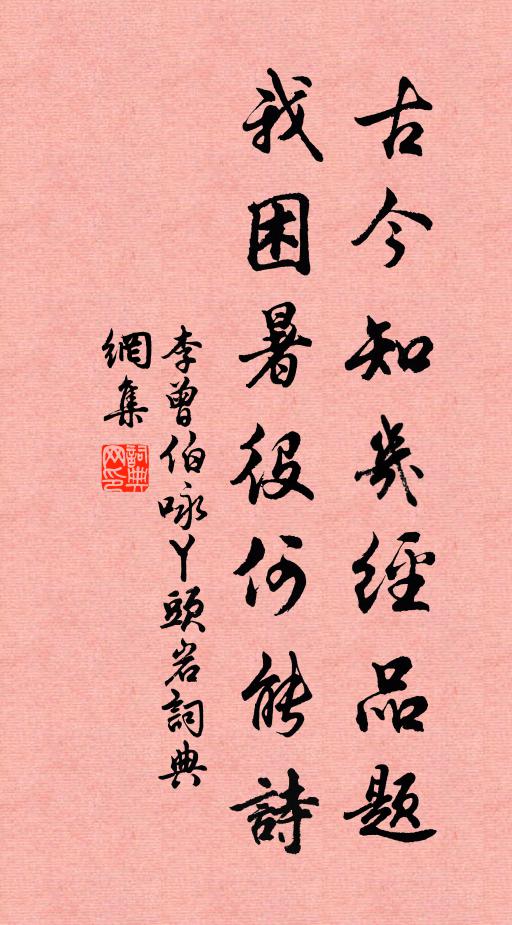 古今知幾經品題
我困暑役何能詩
李曾伯咏丫頭岩詞典
網集
詞典
网印